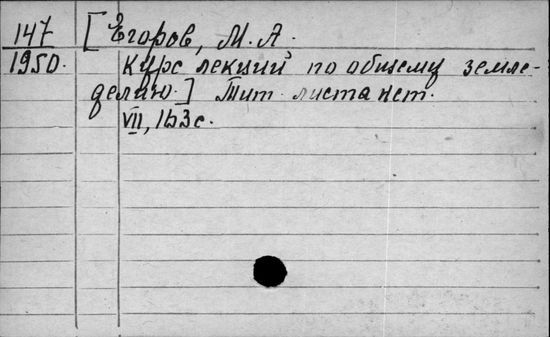 147 [Егоров, М. А.
1950. Курс лекций по общему земле-
делию.] Тит. листа нет.
VII, 163 с.